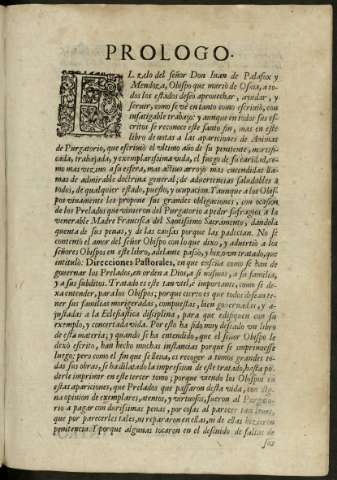 PROLOGO.
EL zelo del señor Don Iuan de Palafox y
Mendoza, Obispo que murio de Osma, a to-
dos los estados deseò aprouechar, ayudar, y
seruir, como se vè en tanto como escriuiò, con
infatigable trabajo: y aunque en todos sus es-
critos se reconoce este santo fin, mas en este
libro de notas a las apariciones de Animas
de Purgatorio, que escriuiò el vltimo año de su penitente, mortifi-
cada, trabajada, y exemplarissima vida, el fuego de su caridad, co-
mo mas vezino a su esfera, mas altiuo arrojò mas encendidas lla-
mas de admirable doctrina general, de aduertencias saludables à
todos, de qualquier estado, puesto, y ocupacion. Y aunque a los Obis-
pos viuamente les propone sus grandes obligaciones, con ocasion
de los Prelados que vinieron del Purgatorio a pedir sufragios a la
venerable Madre Francisca del Santissimo Sacramento, dandola
quenta de sus penas, y de las causas porque las padecian. No se
contentò el amor del señor Obispo con lo que dixo, y aduirtiò a los
señores Obispos en este libro, adelante passò, y hizo vn tratado, que
intitulò. Direcciones Pastorales, en que enseña como se han de
gouernar los Prelados, en orden a Dios, a si mismos, a su familia,
y a sus subditos. Tratado es este tan vtil, è importante, como se de-
xa entender, para los Obispos; porque cierto es que todos desean te-
ner sus familias morigeradas, compuestas, bien gouernadas, y a-
justadas a la Eclesiastica disciplina, para que edifiquen con su
exemplo, y concertada vida. Por esto ha sido muy deseado vn libro
de esta materia; y quando se ha entendido, que el señor Obispo le
dexò escrito, han hecho muchas instancias porque se imprimiesse
luego; pero como el fin que se lleua, es recoger a tomos grandes to-
das sus obras, se ha dilatado la impression de este tratado, hasta po-
derle imprimir en este tercer tomo; porque viendo los Obispos en
estas apariciones, que Prelados que passaron desta vida, con
opinion de exemplares, atentos, y virtuosos, fueron al Purgato-
rio a pagar con durissimas penas, por cosas al parecer tan leues,
que por parecerles tales, ni repararon en ellas, ni de ellas hizieron
penitencia. Y porque algunas tocaron en el descuido de faltas de
sus